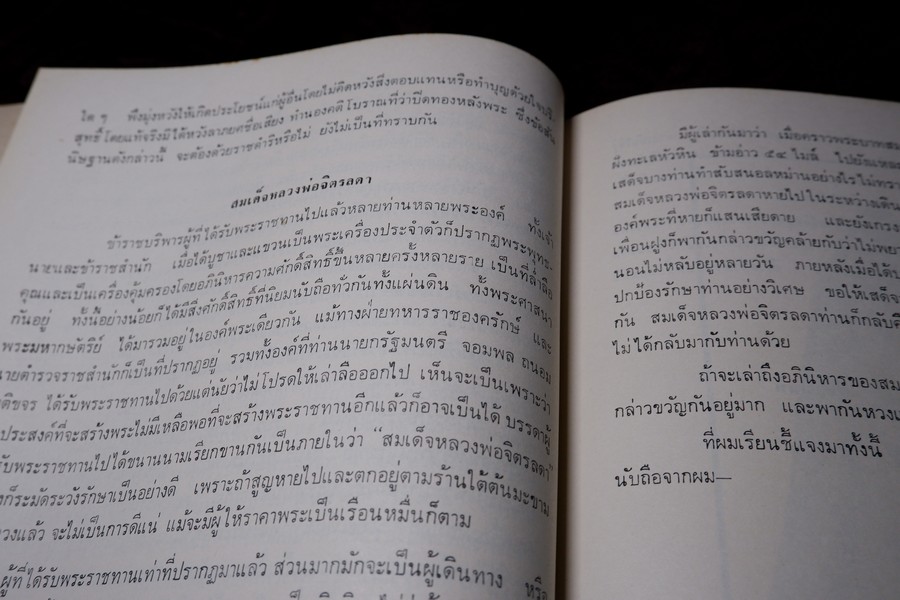 ใด ๆ พึงมุ่งหวังให้เกิดประโยชน์แก่ผู้อื่นโดยไม่คิดหวังสิ่งตอบแทนหรือทำบุญด้วยใจบริ-
สุทธิ์ โดยแท้จริงมิได้หวังลาภยศชื่อเสียง ทำนองคติโบราณที่ว่าปิดทองหลังพระ ซึ่งข้อสัน
นิษฐานดังกล่าวนี้ จะต้องด้วยราชดำริหรือไม่ ยังไม่เป็นที่ทราบกัน
สมเด็จหลวงพ่อจิตรลดา
ข้าราชบริพารผู้ที่ได้รับพระราชทานไปแล้วหลายท่านหลายพระองค์ ทั้งเจ้า
นายและข้าราชสำนัก เมื่อได้บูชาและแขวนเป็นพระเครื่องประจำตัวก็ปรากฏพระพุทธ-
คุณและเป็นเครื่องคุ้มครองโดยอภินิหารความศักดิ์สิทธิ์ขึ้นหลายครั้งหลายราย เป็นที่ล่ำลือ
กันอยู่ ทั้งนี้อย่างน้อยก็ได้มีสิ่งศักดิ์สิทธิ์ที่นิยมนับถือทั่วกันทั้งแผ่นดิน ทั้งพระศาสนา
พระมหากษัตริย์ ได้มารวมอยู่ในองค์พระเดียวกัน แม้ทางฝ่ายทหารราชองครักษ์ และ
นายตำรวจราชสำนักก็เป็นที่ปรากฏอยู่ รวมทั้งองค์ที่ท่านนายกรัฐมนตรี จอมพล ถนอม
ติขจร ได้รับพระราชทานไปด้วยแต่นัยว่าไม่โปรดให้เล่าลือออกไป เห็นจะเป็นเพราะว่า
ประสงค์ที่จะสร้างพระไม่มีเหลือพอที่จะสร้างพระราชทานอีกแล้วก็อาจเป็นได้ บรรดาผู้
รับพระราชทานไปได้ขนานนามเรียกขานกันเป็นภายในว่า “สมเด็จหลวงพ่อจิตรลดา”
งก็ระมัดระวังรักษาเป็นอย่างดี เพราะถ้าสูญหายไปและตกอยู่ตามร้านใต้ต้นมะขาม
วงแล้ว จะไม่เป็นการดีแน่ แม้จะมีผู้ให้ราคาพระเป็นเรือนหมื่นก็ตาม
ผู้ที่ได้รับพระราชทานเท่าที่ปรากฏมาแล้ว ส่วนมากมักจะเป็นผู้เดินทาง หรือ
มีผู้เล่ากันมาว่า เมื่อคราวพระบาทสม
ฝั่งทะเลหัวหิน ข้ามอ่าว ๕๔ ไมล์ ไปยังแหล
เสด็จบางท่านทำสับสนอลหม่านอย่างไรไม่ทรา
สมเด็จหลวงพ่อจิตรลดาหายไปในระหว่างเดิน
องค์พระที่หายก็แสนเสียดาย และยังเกรง
เพื่อนฝูงก็พากันกล่าวขวัญคล้ายกับว่าไม่พยา
นอนไม่หลับอยู่หลายวัน ภายหลังเมื่อได้บ
ปกป้องรักษาท่านอย่างวิเศษ ขอให้เสด็จ
กัน สมเด็จหลวงพ่อจิตรลดาท่านก็กลับคื
ไม่ได้กลับมากับท่านด้วย
ถ้าจะเล่าถึงอภินิหารของสม
กล่าวขวัญกันอยู่มาก และพากันหวงแ
ที่ผมเรียนชี้แจงมาทั้งนี้
นับถือจากผม—